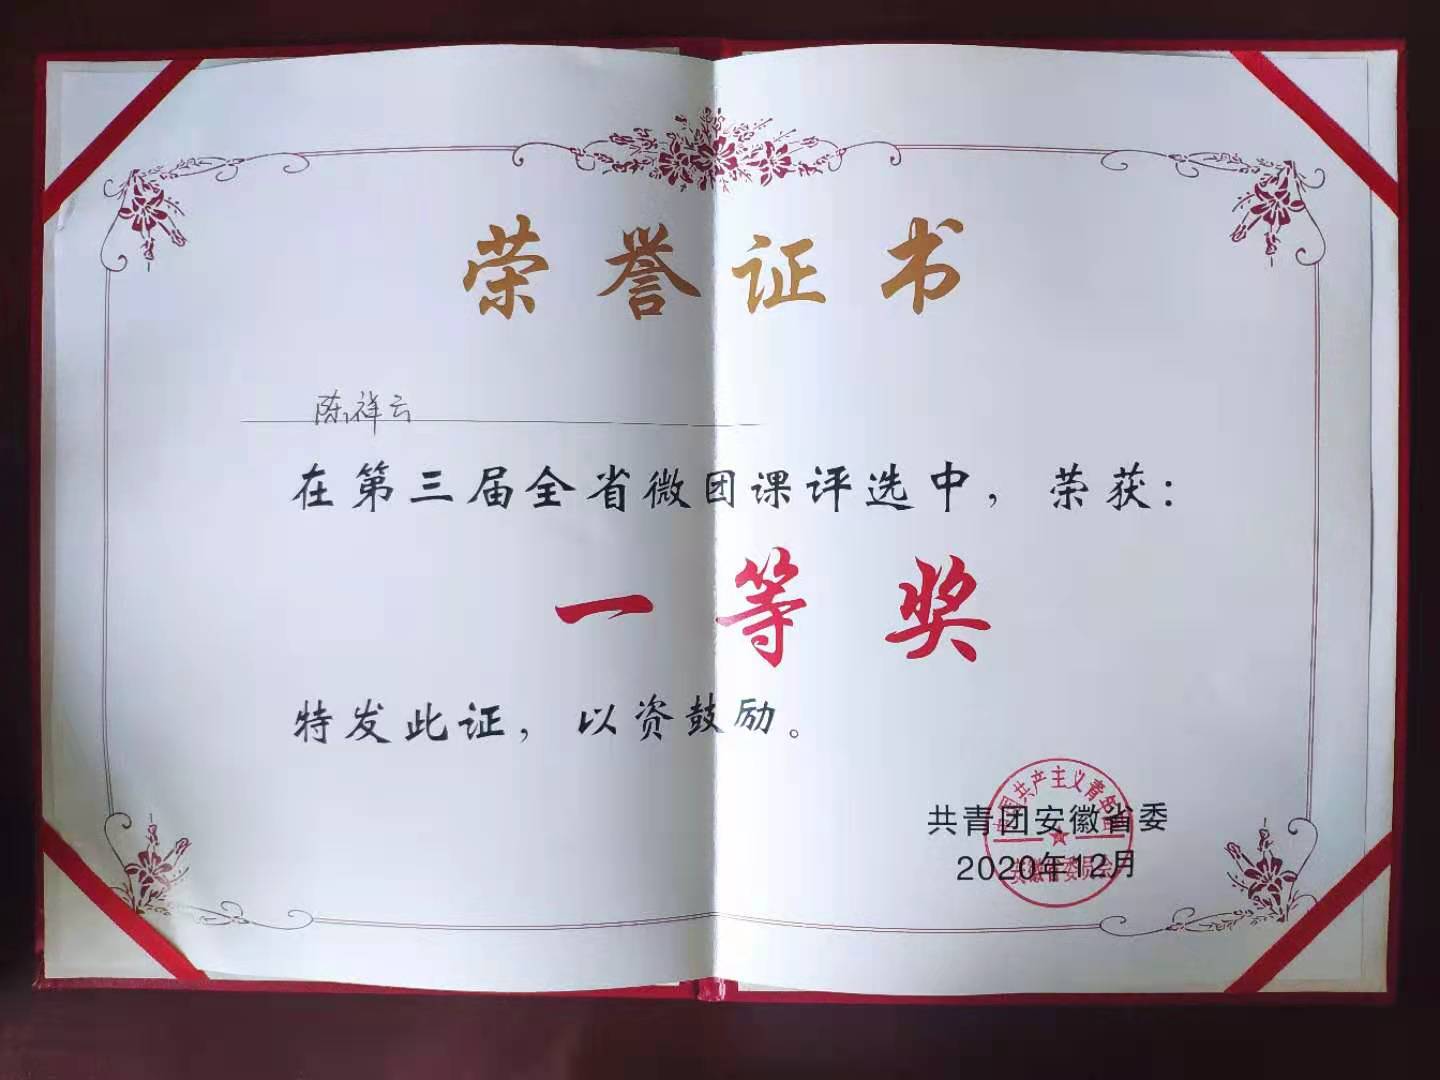 荣誉证书
陈祥云
在第三届全省微团课评选中，荣获：
一等奖
特发此证，以资鼓励。
共青团安徽省委
2020年12月
中国共产主义青年团
安徽省委员会